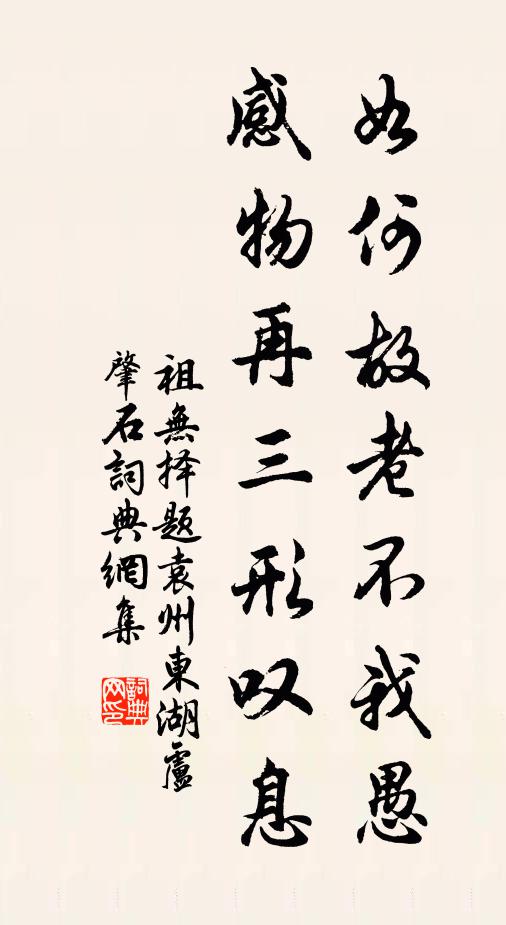 如何故老不我愚
感物再三形叹息
祖無择题袁州東湖盧
肇石詞典網集
詞典网印